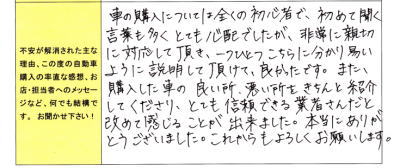 不安が解消された主な
理由、この度の自動車
購入の率直な感想、お
店・担当者へのメッセー
ジなど、何でも結構で
す。お聞かせ下さい！
車の購入については全くの初心者で、初めて聞く
言葉も多くとても心配でしたが、非常に親切
に対応して頂き、一つひとつこちらに分かり易い
ように説明して頂けて、良かったです。また、
購入した車の良い所、悪い所をきちんと紹介
してくださり、とても信頼できる業者さんだと
改めて感じることが出来ました。本当にありが
とうございました。これからもよろしくお願いします。